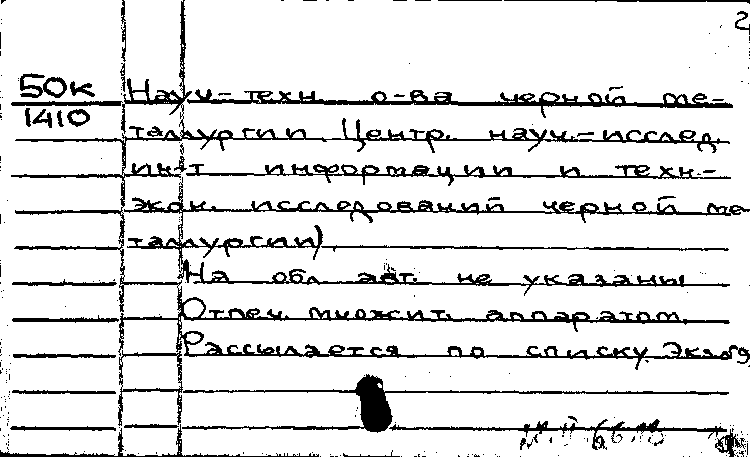 2
50к
1410
Науч.-техн. о-ва черной ме-
таллургии. Центр. науч.-исслед.
ин-т информации и техн.-
экон. исследований черной ме
таллургии).
На обл. авт. не указаны
Отпеч. множит. аппаратом.
Рассылается по списку.